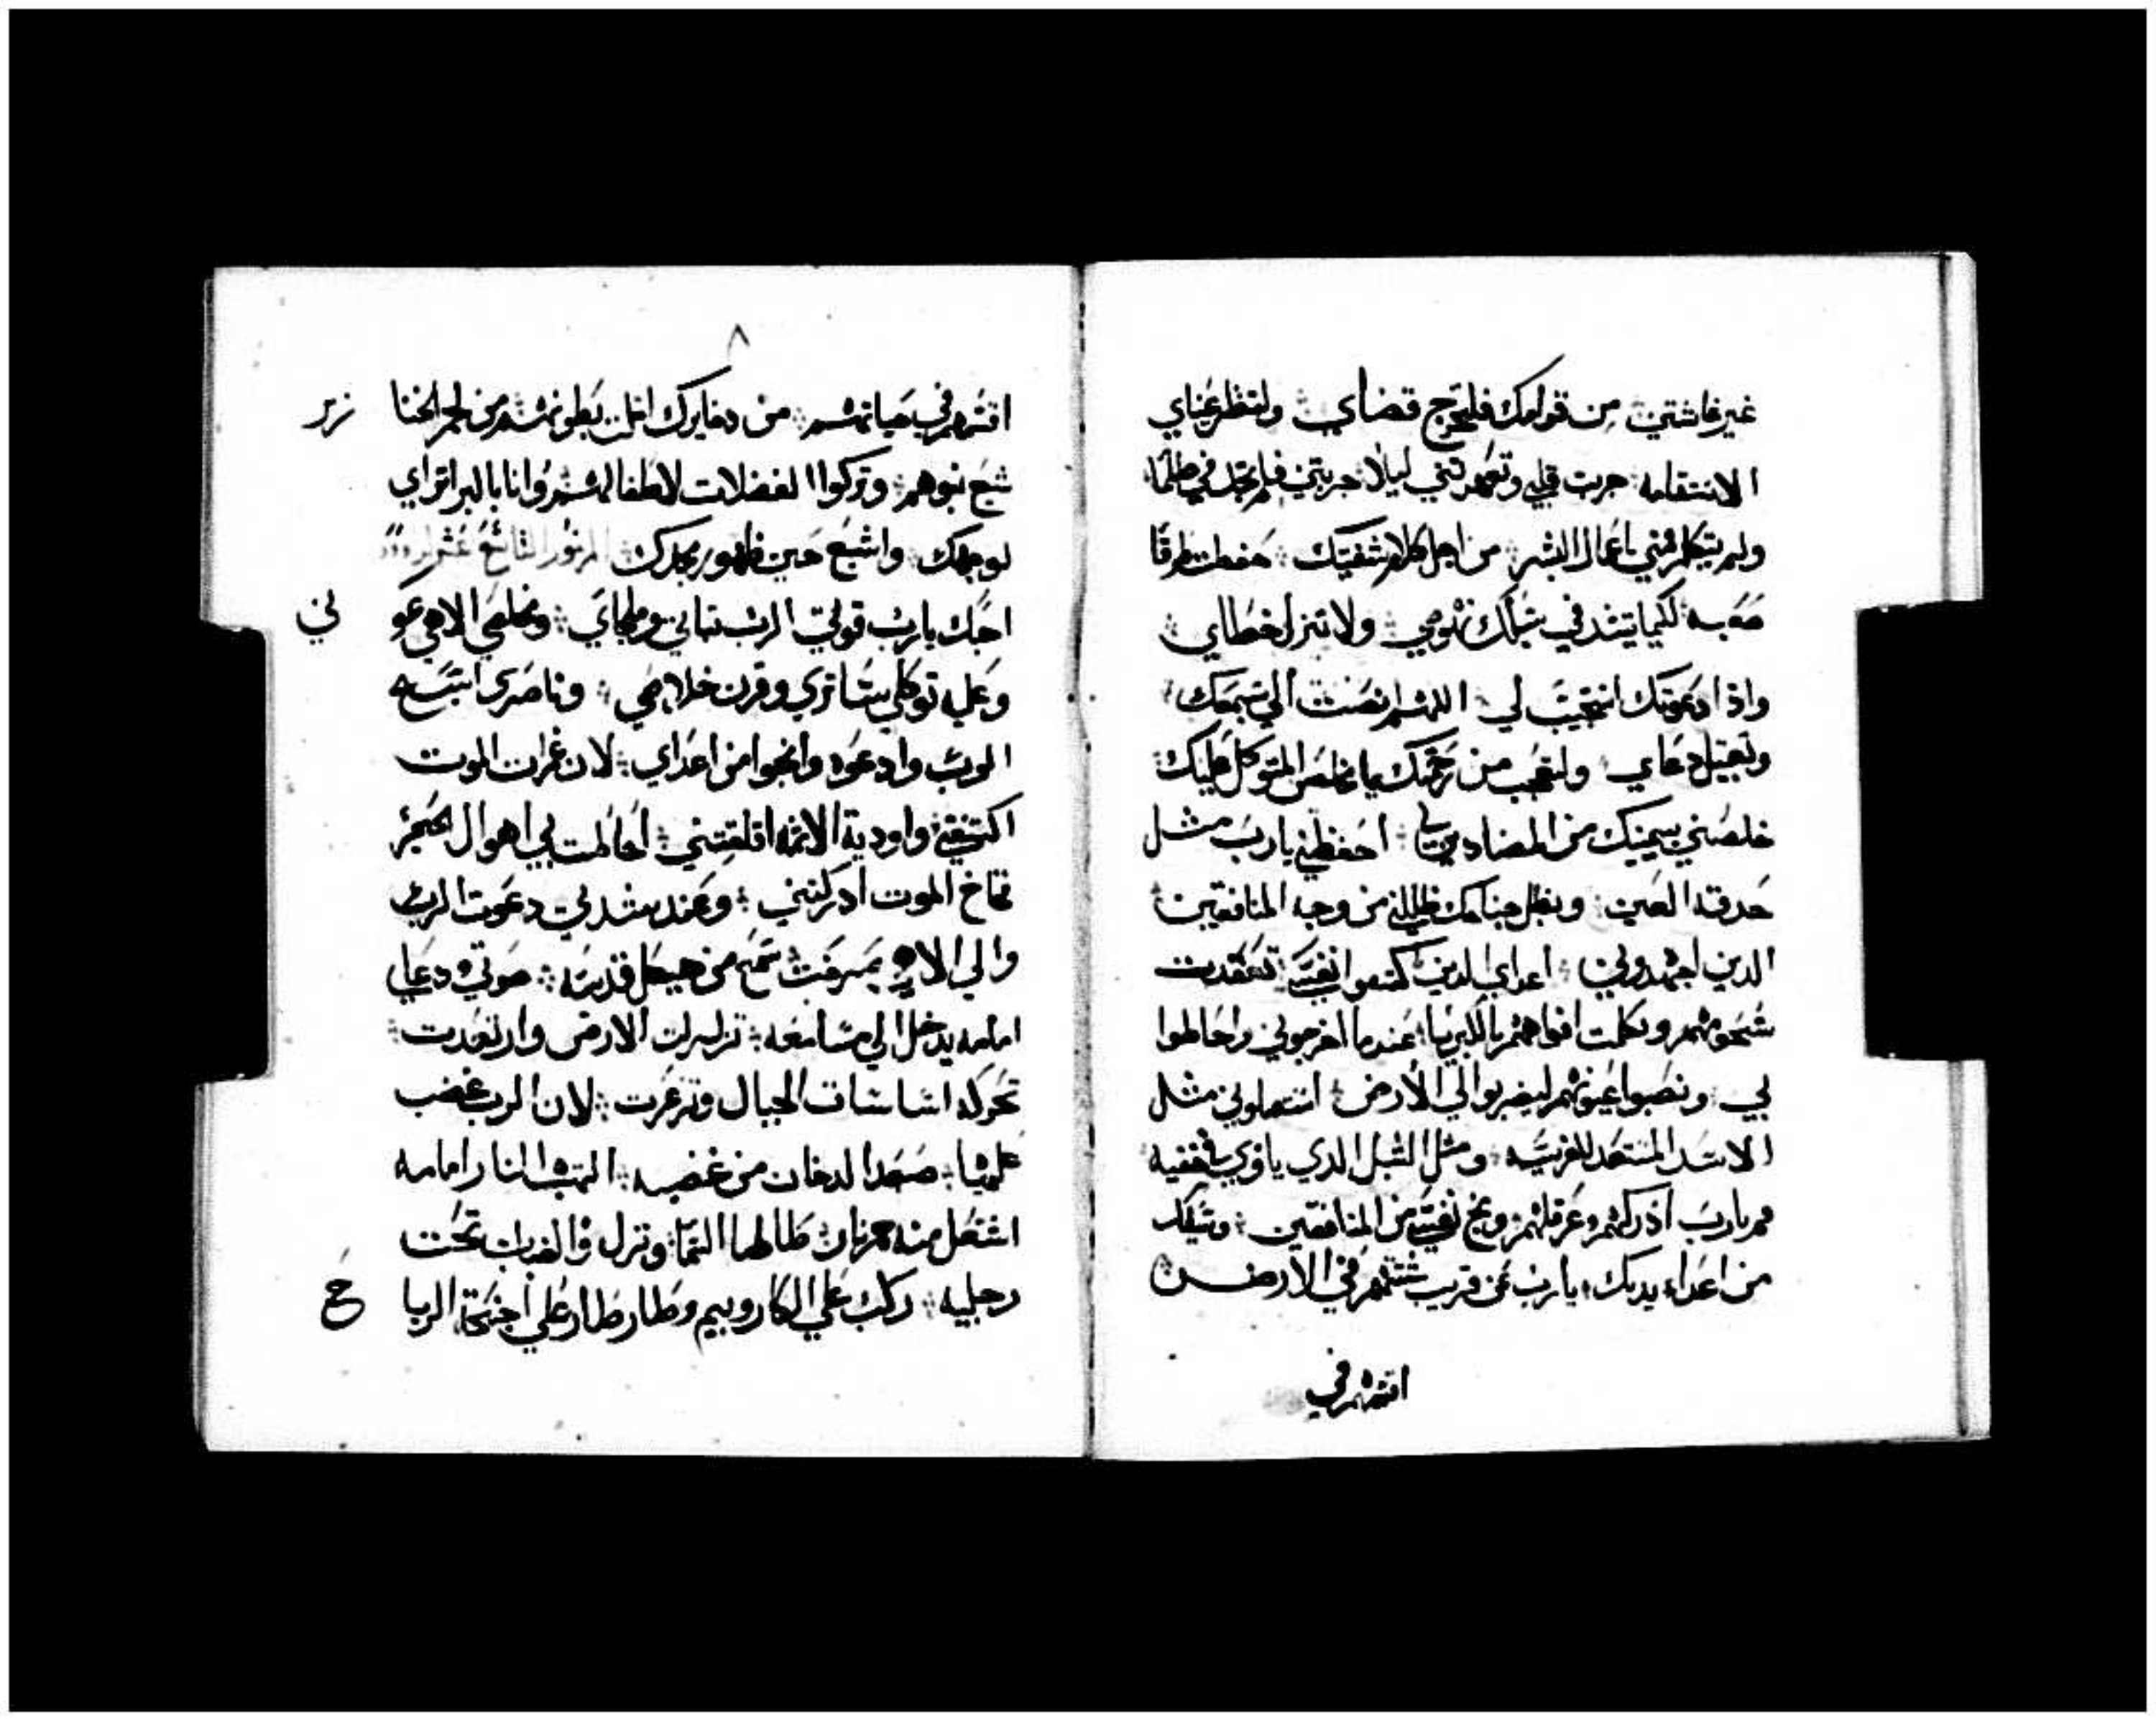 غير غاشتين من قدامك فليخرج قضاي ولتنظر عيناي
الاستقامه جربت قلبي وتعهدتني ليلا جربتني فلم تجد في ظلما
ولم يتكلم فمي باعمال البشر من اجل كلام شفتيك حفظت طرقا
صعبه لكيما تشتد في سبلك تقومي ولا تنزل خطاي
واذا دعوتك استجيب لي اللهم انصت الي سمعك
وتقبل دعاي ولتعجب من رحمتك يا مخلص المتوكل عليك
خلصني بيمينك من المضاددين احفظني يارب مثل
حدقة العين وبظل جناحك ظللني من وجه المنافقين
الدين اجهدوني اعداي الدين كتموا نفسي تعقدت
شحومهم وتكلمت افواههم بالكبريا عندما اخرجوني واحاطوا
بي ونصبوا عيونهم ليضربوا الي الارض استعملوني مثل
الاسد المستعد للفريسه ومثل الشبل الدي ياوي في خفيه
قم يارب ادركهم وعرقلهم ونج نفسي من المنافقين وسيفك
من اعداء يديك يارب عن قريب شتتهم في الارض
اقسمهم في
٨
اقسمهم في حياتهم من دخايرك امتلت بطونهم من لحم الخنا زير
شبع بنوهم وتركوا الفضلات لاطفالهم وانا بالبر اتراي
لوجهك واشبع حين ظهور مجدك المزمور السابع عشر
احبك يارب قوتي الرب تباتي وملجاي ومخلصي الاهي عو ني
وعليه توكلي ساتري وقرن خلاصي وناصري اسبح
الرب وادعوه وانجوا من اعداي لان غمرات الموت
اكتنفتني واودية الاتمه اقلقتني احاطت بي اهوال الجحيم
فخاخ الموت ادركتني وعند شدتي دعوت الرب
والي الاهي صرخت سمع من هيكل قدسه صوتي ودعاي
امامه يدخل الي مسامعه تزلزلت الارض وارتعدت
تحركه اساسات الجبال وتزعزعت لان الرب غضب
عليها صعد الدخان من غضبه التهب النار امامه
اشتعل منه جمر نار طاطا السما ونزل والضباب تحت
رجليه ركب علي الكاروبيم وطار طار علي اجنحة الريا ح